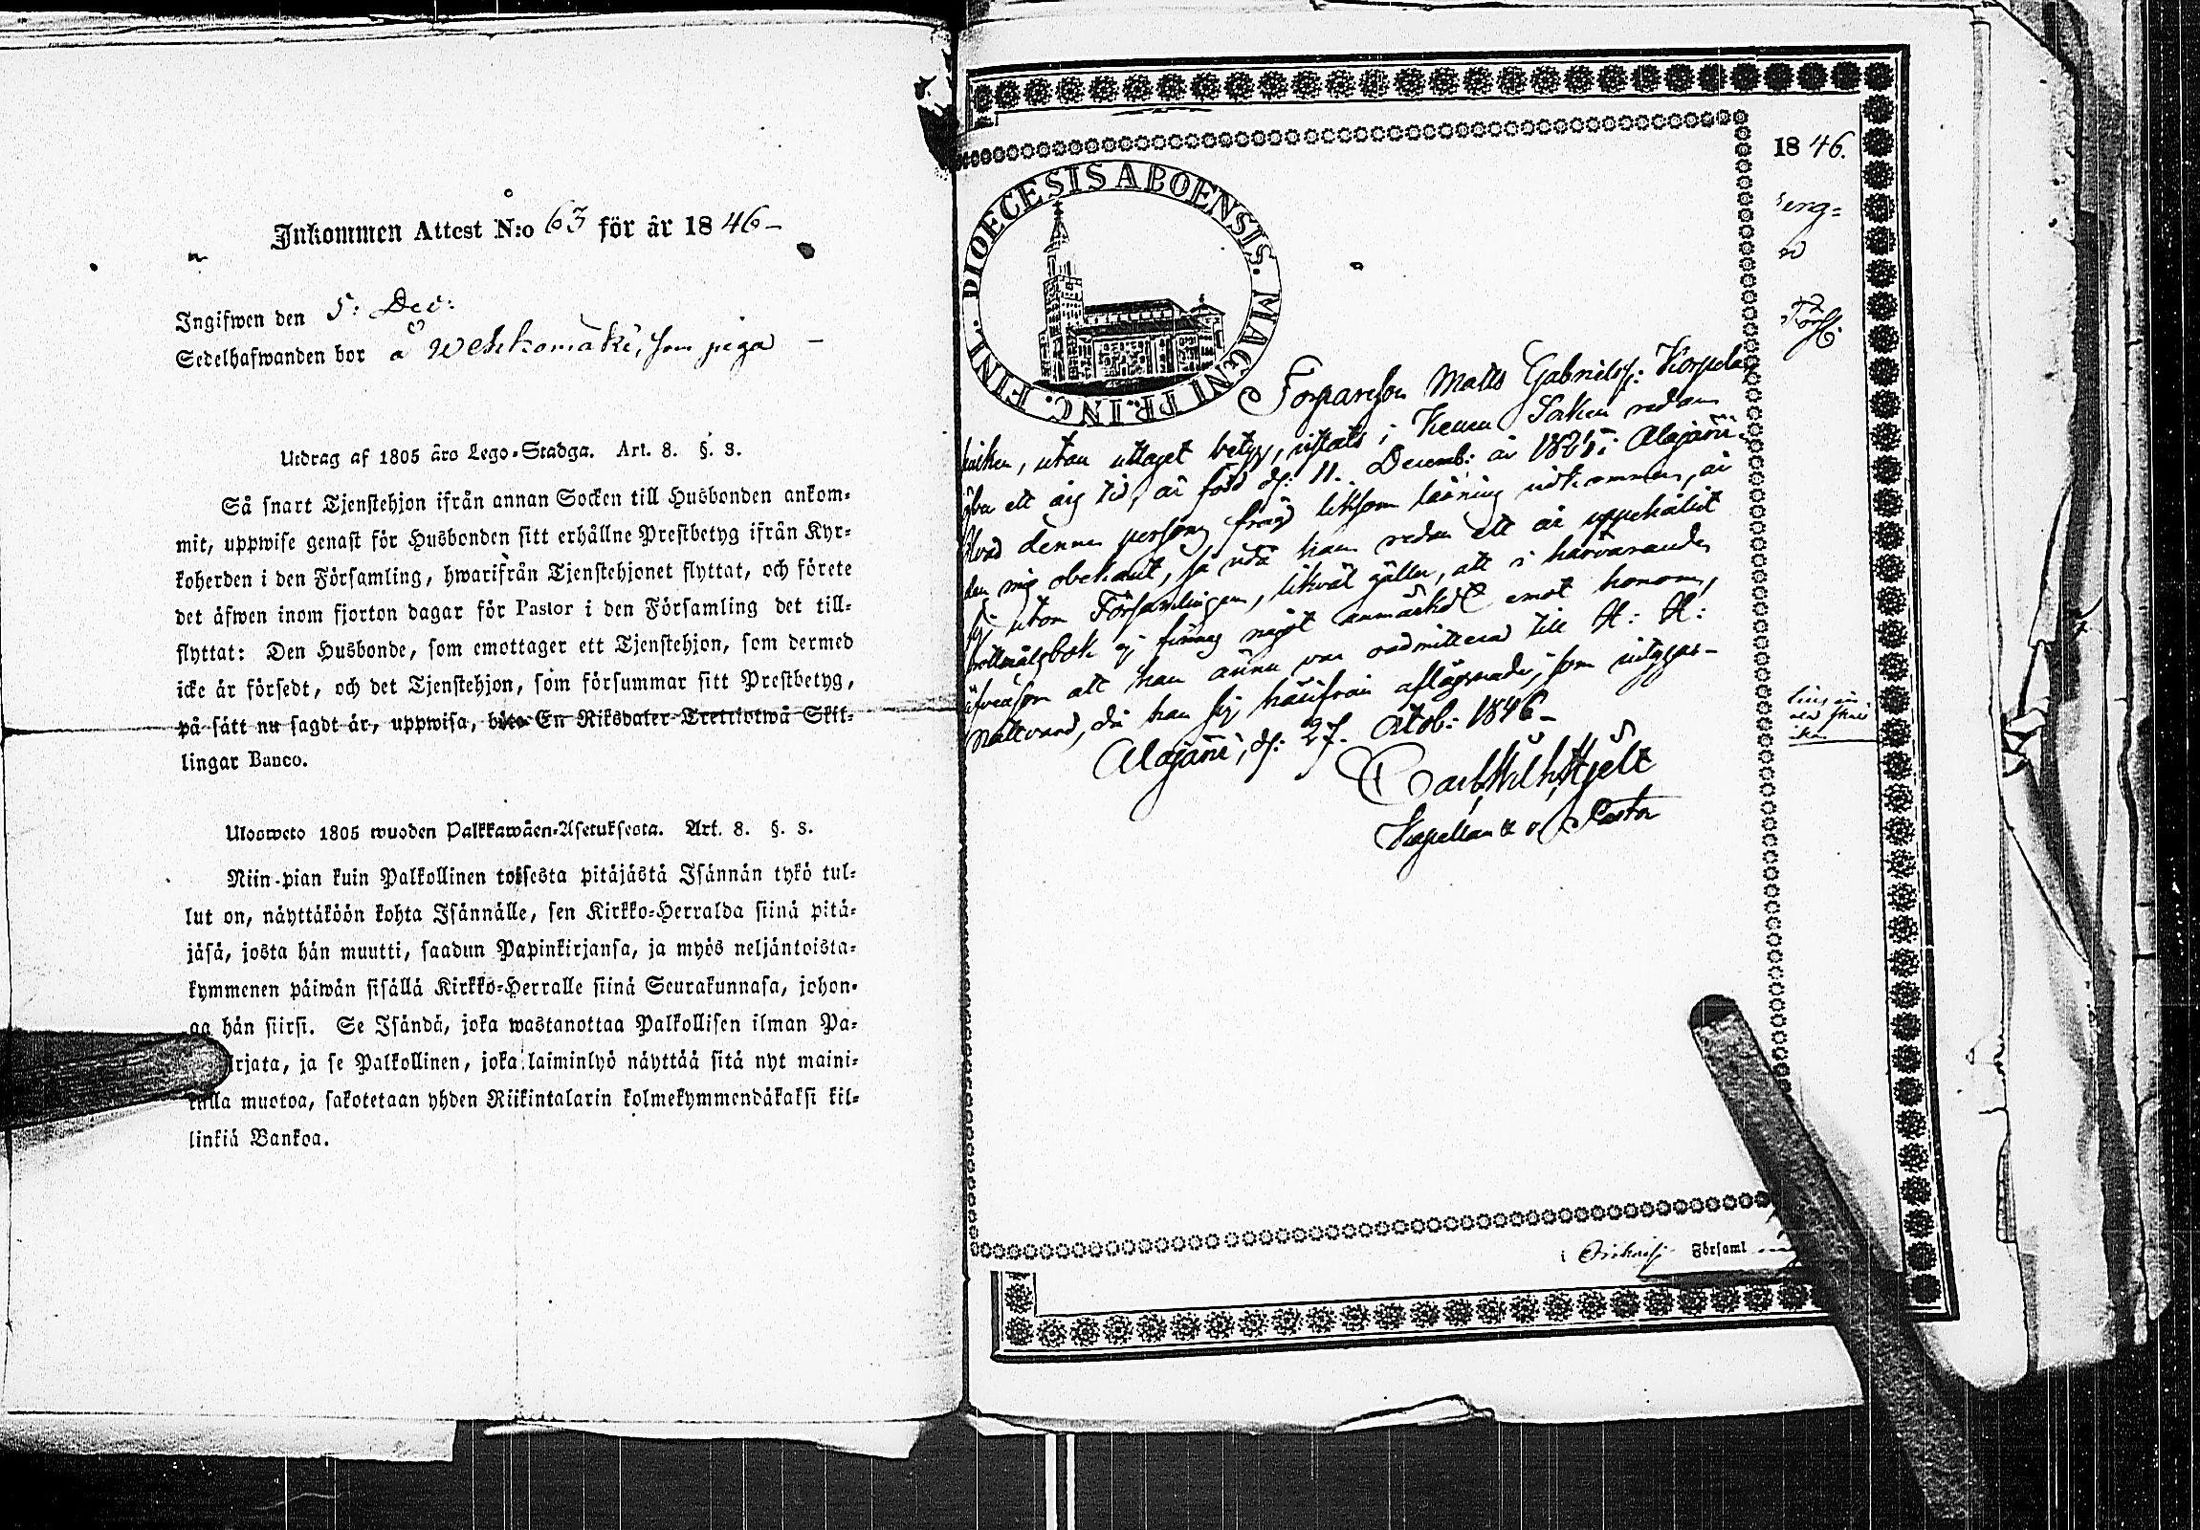 Inkommen Attest N:o 63 för år 1846 –
Ingifwen den 5: Dec:
Sedelhafwanden bor å Wehkomäki, som piga –
Utdrag af 1805 års Lego-Stadga. Art. 8. §. 3.
Så snart Tjenstehjon ifrån annan Socken till Husbonden ankom-
mit, uppwise genast för Husbonden sitt erhållne Prestbetyg ifrån Kyr-
koherden i den Församling, hwarifrån Tjenstehjonet flyttat, och förete
det äfwen inom fjorton dagar för Pastor i den Församling det till-
flyttat: Den Husbonde, som emottager ett Tjenstehjon, som dermed
icke är försedt, och det Tjenstehjon, som försummar sitt Prestbetyg,
på sätt nu sagdt är, uppwisa, böte En Riksdaler Trettiotwå Skil-
lingar Banco.
Ulosweto 1805 wuoden Palkkawäen-Asetuksesta. Art. 8. §. 3.
Niin pian kuin Palkollinen toisesta pitäjästä Isännän tykö tul-
lut on, näyttäköön kohta Isännälle, sen Kirkko-Herralda siinä pitä-
jäsä, josta hän muutti, saadun Papinkirjansa, ja myös neljäntoista-
kymmenen päiwän sisällä Kirkko-Herralle siinä Seurakunnasa, johon-
ga hän siirsi. Se Isändä, joka wastanottaa Palkollisen ilman Pa-
rjata, ja se Palkollinen, joka laiminlyö näyttää sitä nyt maini-
tulla muotoa, sakotetaan yhden Riikintalarin kolmekymmendäkaksi kil-
linkiä Bankoa.
DIOECESIS ABOENSIS. MAGNI PR.INC. FINL.
1846.
Torpareson Matts Gabrielss: Korpela
utan uttaget betyg, vistats i Keuru Socken redan
öfver ett årg tid, är född d: 11. Decemb: år 1825 i Alajärvi.
Hvad denne persons frägd liksom läsning vidkommer, är
den mig obekant, så vida han redan ett år uppehållit
sig utom Församlingen, likväl gäller, att i härvarande
bok ej finnes något anmärkt emot honom,
äfvensom att han ännu var admitterad till H: H:
nattvard, då han sig härifrån aflägsnade, som intygas –
Alajärvi, d: 27. Octob: 1846 –
Carl Wilh. Hjelt
Kapellan & v. Pastor
i Församl